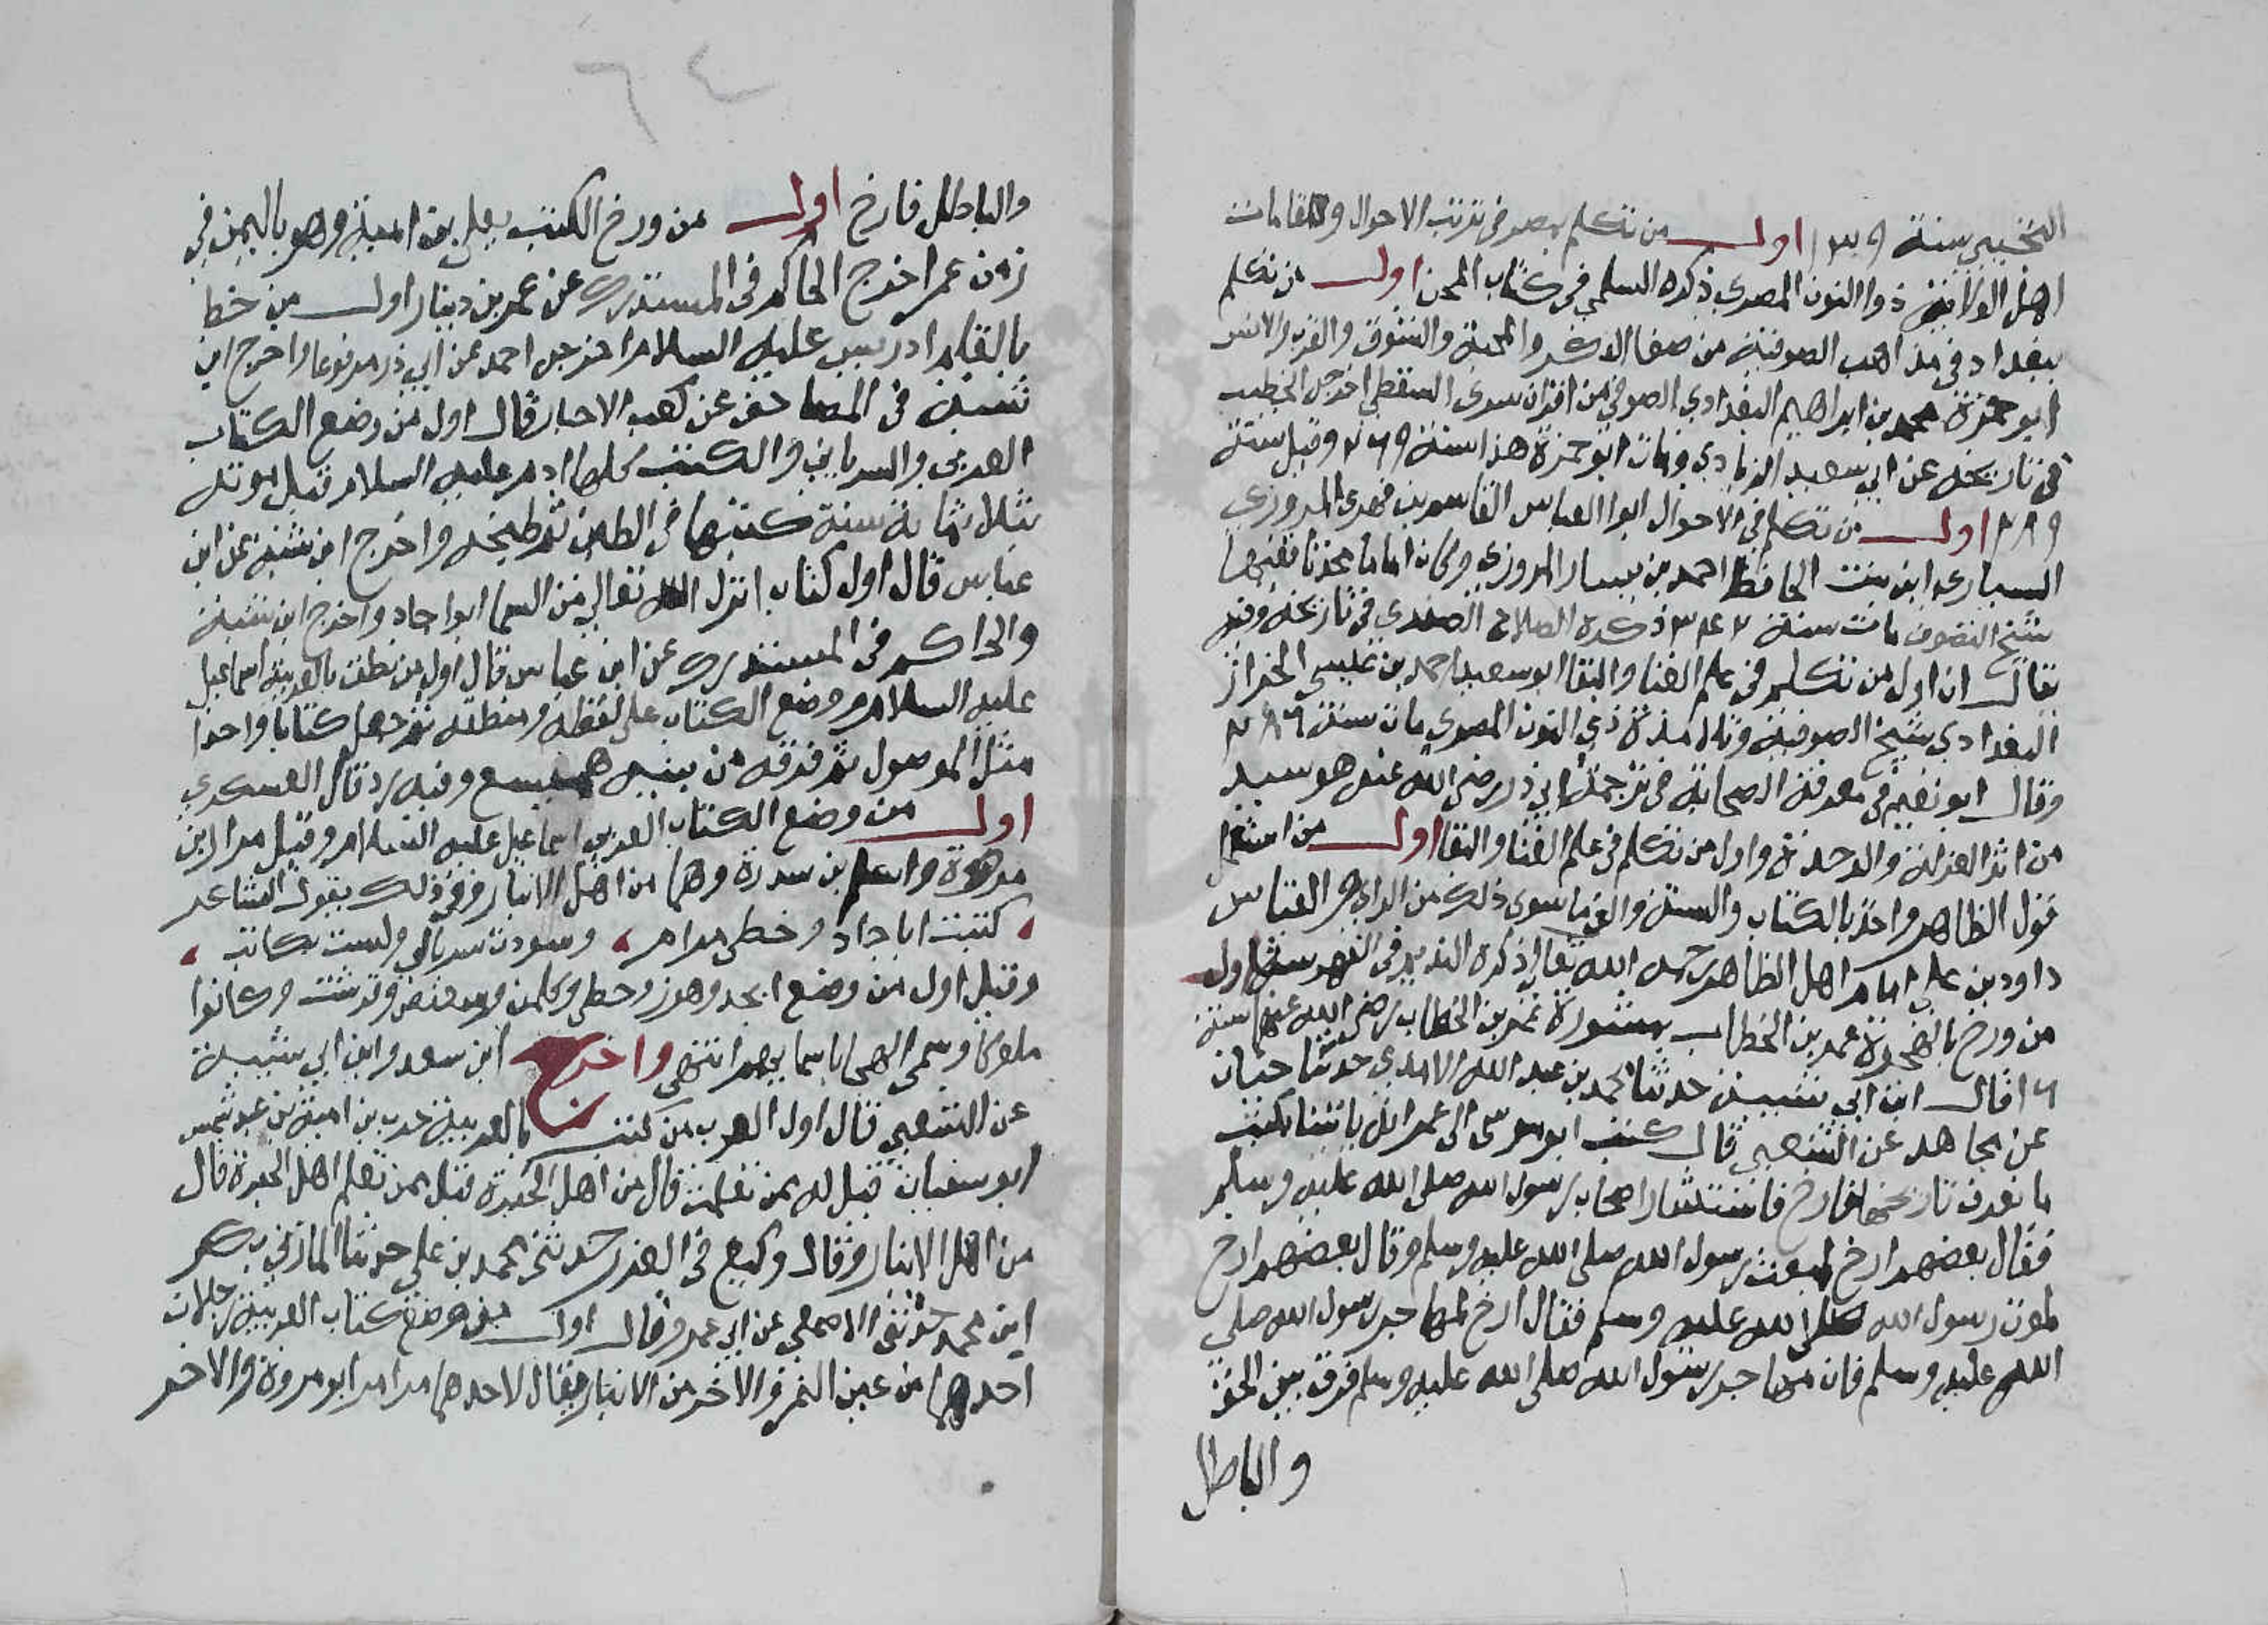 النخيبي سنة ١٣٩ اول من تكلم بمصر فى ترتيب الاحوال والمقامات
اهل الولاية ذوا النون المصري ذكره السلمي في كتاب المحن اول من تكلم
ببغداد في مذاهب الصوفية من صفا الذكر والمحبة والشوق والقرب والانس
ابو حمزة محمد بن ابراهيم البغدادي الصوفي من اقران سرى السقطي اخرجه الخطيب
فى تاريخه عن ابي سعيد الزيادي ومات ابو حمزة هذا سنة ٢٦٩ وقيل سنة
٢٨٩ اول من تكلم في الاحوال ابوا العباس القاسم بن مهدى المروزي
السيارى ابن بنت الحافظ احمد بن يسار المروزي وكان اماما محدثا فقيها
شيخ التصوف مات سنة ٣٤٢ ذكره الصلاح الصفدي في تاريخه وفيه
يقال ان اول من تكلم في علم الفنا والبقا ابو سعيد احمد بن عيسى الخراز
البغدادي شيخ الصوفية وتلامذة ذي النون المصري مات سنة ٢٨٦
وقال ابو نعيم في معرفة الصحابة في ترجمة ابي ذر رضي الله عنه هو سيد
من اثر العزلة والوحدة واول من تكلم في علم الفنا والبقا اول من استعمل
قول الظاهر واخذ بالكتاب والسنة والغى ما سوى ذلك من الراي والقياس
داود بن علي امام اهل الظاهر رحمه الله تعالى ذكره النديم في الفهرست اول
من ورخ بالهجرة عمر بن الخطاب بمشورة عمر بن الخطاب رضي الله عنهما سنة
١٦ قال ابن ابي شيبة حدثنا محمد بن عبد الله الاسدي حدثنا حبان
عن مجاهد عن الشعبي قال كتب ابو موسى الى عمر انك ياتينا كتب
ما نعرف تاريخها فارخ فاستشار اصحاب رسول الله صلى الله عليه وسلم
فقال بعضهم ارخ لمبعث رسول الله صلى الله عليه وسلم وقال بعضهم ارخ
لموت رسول الله صلى الله عليه وسلم فقال ارخ لمهاجر رسول الله صلى
الله عليه وسلم فان مهاجر رسول الله صلى الله عليه وسلم فرق بين الحق
والباطل
٦٤
والباطل فارخ اول من ورخ الكتب يعلى بن امية وهو باليمن في
زمن عمر اخرج الحاكم فى المستدرك عن عمر بن دينار اول من خط
بالقلم ادريس عليه السلام اخرجه احمد عن ابي ذر مرفوعا واخرج ابن
شيبة فى المصاحف عن كعب الاحبار قال اول من وضع الكتاب
العربي والسرياني والكتب كلها ادم عليه السلام قبل موته
بثلاثماية سنة كتبها في الطين ثم طبخه واخرج ابن شيبة عن ابن
عباس قال اول كتاب انزل الله تعالى من السما ابوا جاد واخرج ابن شيبة
والحاكم فى المستدرك عن ابن عباس قال اول من نطق بالعربية اسماعيل
عليه السلام ووضع الكتاب على لفظه ومنطقه ثم جعل كتابا واحدا
مثل الموصول ثم فرقه من بنيه هميسع وقيدار قال العسكري
اول من وضع الكتاب العربي اسماعيل عليه السلام وقيل مرار بن
مرهوة واسلم بن سدرة وهما من اهل الانبار وفى ذلك يقول الشاعر
كتبت ابا جاد وخطى مرامر وسودت سربالي ولست بكاتب
وقيل اول من وضع ابجد وهوز وحطي وكلمن وسعفص وقرشت وكانوا
ملوكا وسمى الهجا باسمايهم انتهى واخرج ابن سعد وابن ابي شيبة
عن الشعبي قال اول العرب من كتب بالعربية حرب بن امية بن عبد شمس
ابو سفيان قيل له ممن تعلمت قال من اهل الحيرة قيل ممن تعلم اهل الحيرة قال
من اهل الانبار وقال وكيع فى الغرر حدثنى محمد بن علي حدثنا المازني بكر
ابن محمد حدثنى الاصمعي عن ابي عمرو قال اول من وضع كتاب العربية رجلان
احدهما من عين التمر والاخر من الانبار يقال لاحدهما مرامر ابو مروة والاخر